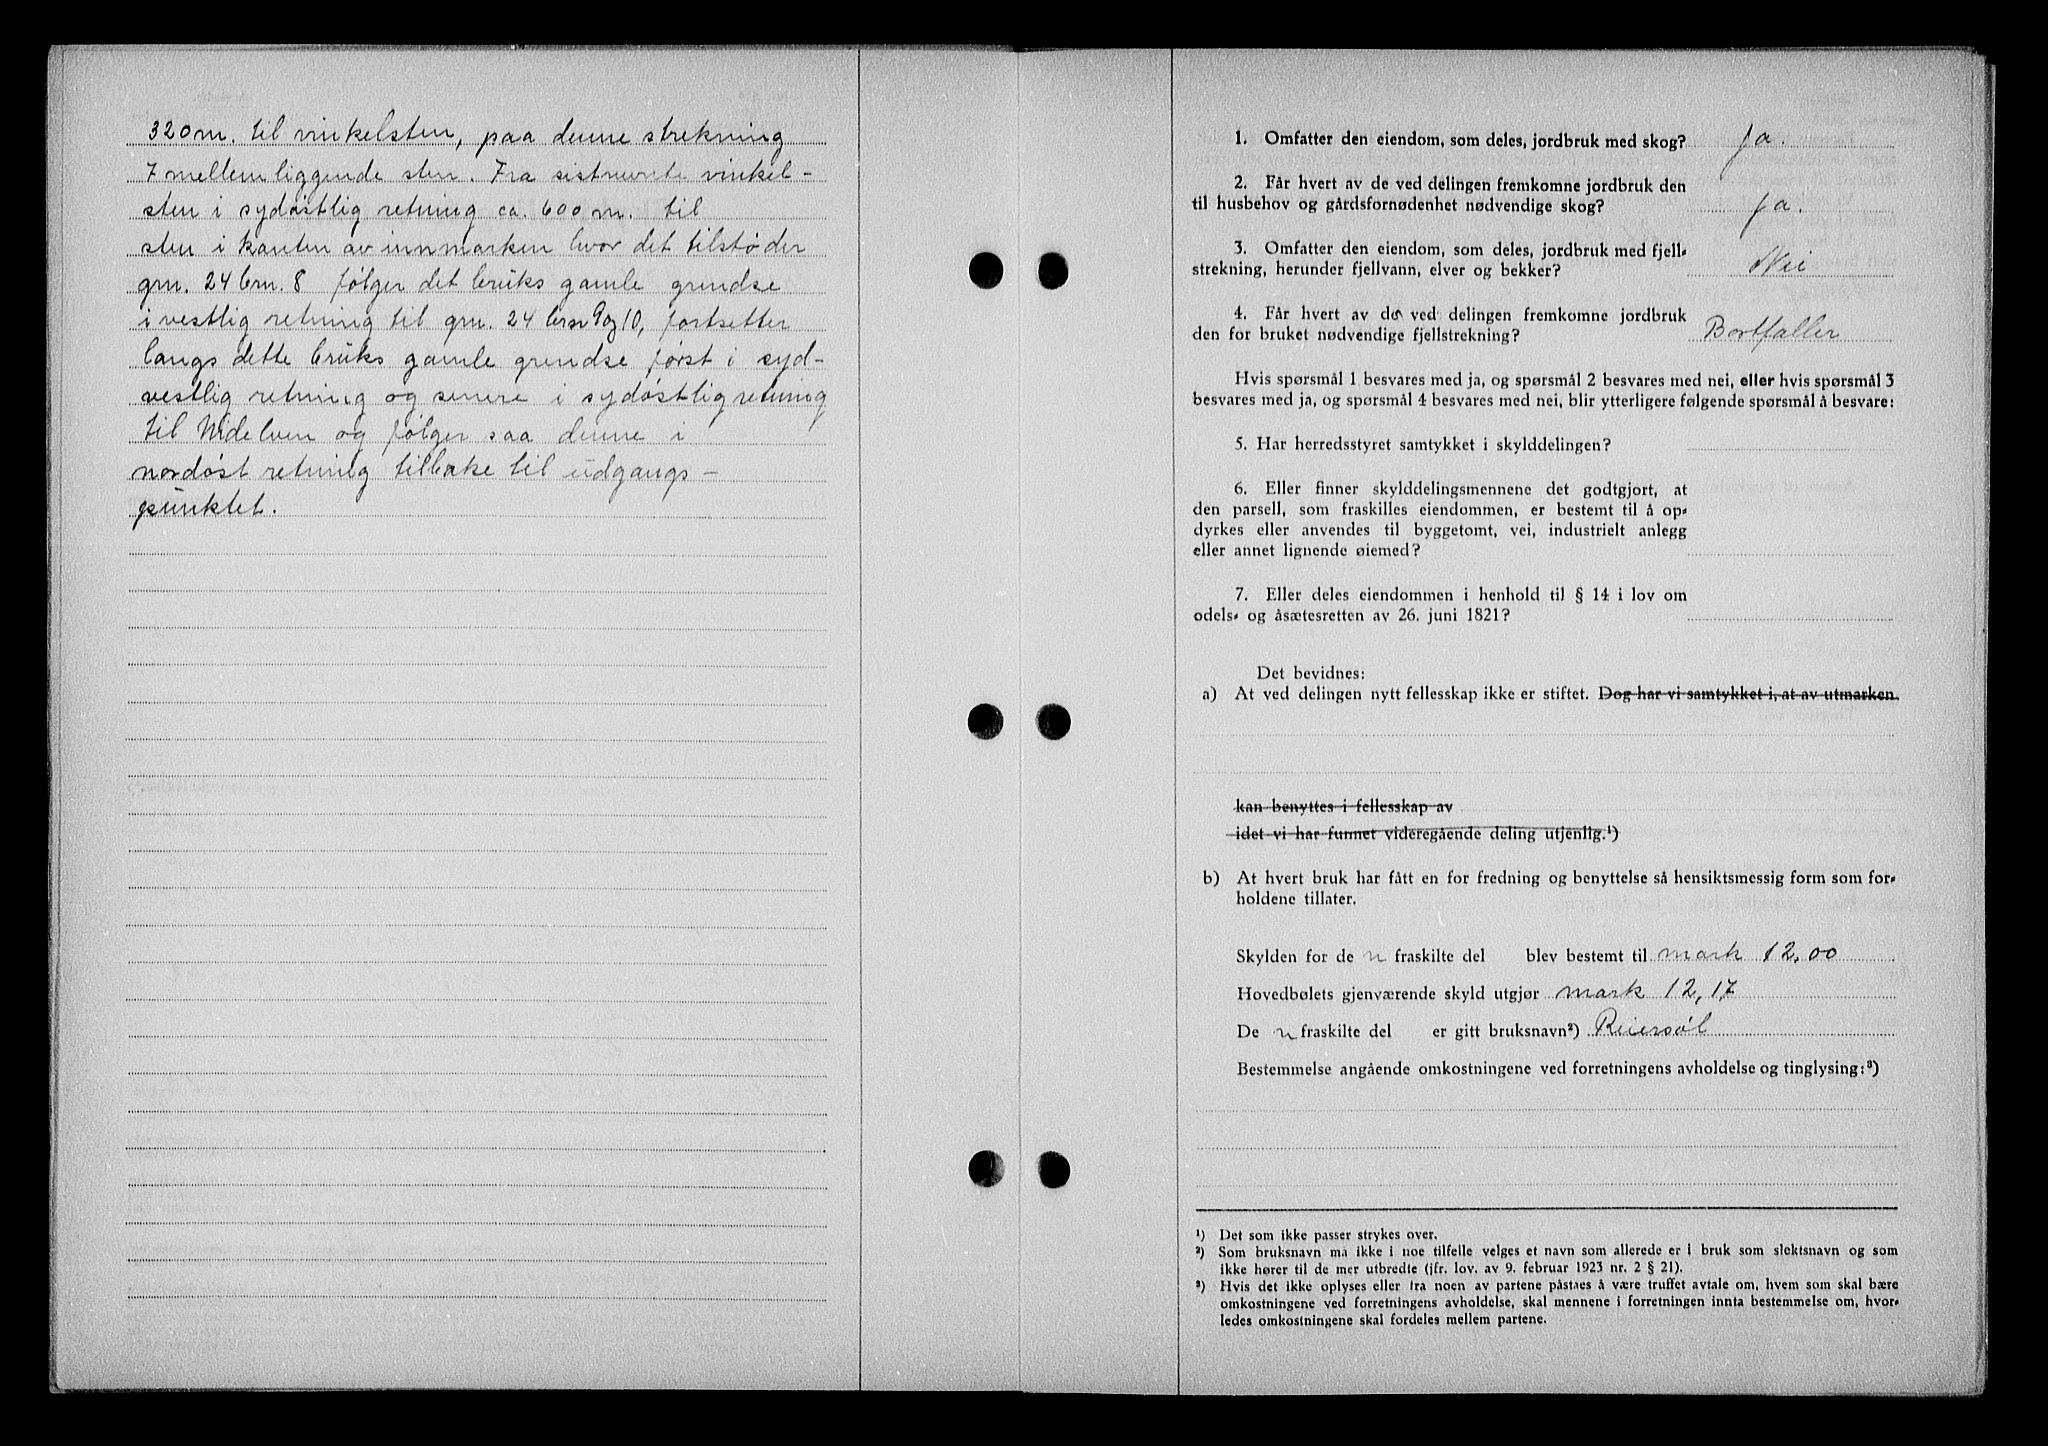 320 m. til vinkelsten, paa denne strekning
7 mellemliggende sten. Fra sistnevnte vinkel-
sten i sydøstlig retning ca. 600 m. til
sten i kanten av innmarken hvor det tilstøder
grn. 24 brn. 8 følger det bruks gamle grendse
i vestlig retning til grn. 24 brn 9 og 10, fortsetter
langs dette bruks gamle grendse først i syd-
vestlig retning og senere i sydøstlig retning
til Nidelven og følger saa denne i
nordøst retning tilbake til udgangs-
punktet.
1. Omfatter den eiendom, som deles, jordbruk med skog? Ja.
2. Får hvert av de ved delingen fremkomne jordbruk den
til husbehov og gårdsfornødenhet nødvendige skog? Ja.
3. Omfatter den eiendom, som deles, jordbruk med fjell-
strekning, herunder fjellvann, elver og bekker? Nei
4. Får hvert av de ved delingen fremkomne jordbruk
den for bruket nødvendige fjellstrekning? Bortfaller
Hvis spørsmål 1 besvares med ja, og spørsmål 2 besvares med nei, eller hvis spørsmål 3
besvares med ja, og spørsmål 4 besvares med nei, blir ytterligere følgende spørsmål å besvare:
5. Har herredsstyret samtykket i skylddelingen?
6. Eller finner skylddelingsmennene det godtgjort, at
den parsell, som fraskilles eiendommen, er bestemt til å op-
dyrkes eller anvendes til byggetomt, vei, industrielt anlegg
eller annet lignende øiemed?
7. Eller deles eiendommen i henhold til § 14 i lov om
odels- og åsætesretten av 26. juni 1821?
Det bevidnes:
a) At ved delingen nytt fellesskap ikke er stiftet. Dog har vi samtykket i, at av utmarken.
kan benyttes i fellesskap av
idet vi har funnet videregående deling utjenlig.¹)
b) At hvert bruk har fått en for fredning og benyttelse så hensiktsmessig form som for-
holdene tillater.
Skylden for de n fraskilte del blev bestemt til mark 12,00
Hovedbølets gjenværende skyld utgjør mark 12,17
De n fraskilte del er gitt bruksnavn²) Reiersøl
Bestemmelse angående omkostningene ved forretningens avholdelse og tinglysing:³)
¹) Det som ikke passer strykes over.
²) Som bruksnavn må ikke i noe tilfelle velges et navn som allerede er i bruk som slektsnavn og som
ikke hører til de mer utbredte (jfr. lov. av 9. februar 1923 nr. 2 § 21).
³) Hvis det ikke oplyses eller fra noen av partene påstaes å være truffet avtale om, hvem som skal bære
omkostningene ved forretningens avholdelse, skal mennene i forretningen innta bestemmelse om, hvor-
ledes omkostningene skal fordeles mellem partene.